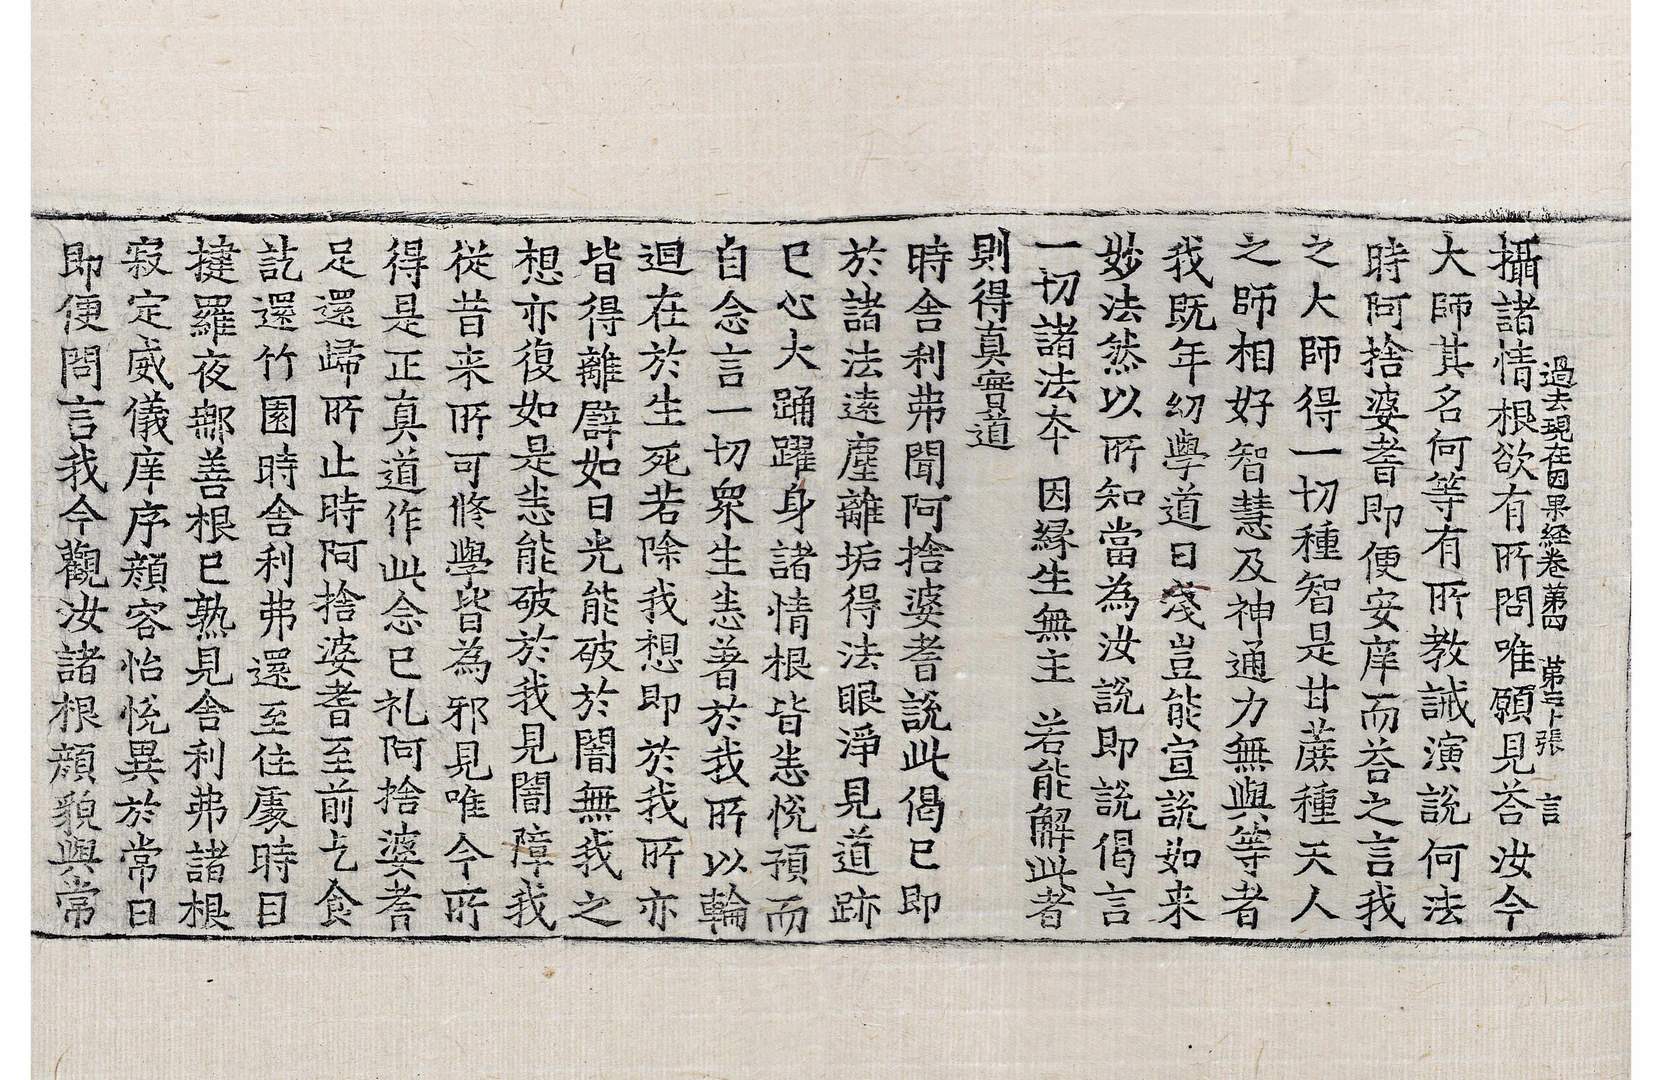 過去現在因果経卷第四　第二十張　言
攝諸情根欲有所問唯願見荅汝今
大師其名何等有所教誡演說何法
時阿捨婆耆即便安庠而荅之言我
之大師得一切種智是甘蔗種天人
之師相好智慧及神通力無與等者
我既年幼學道日淺豈能宣說如来
妙法然以所知當為汝說即說偈言
一切諸法本　因縁生無主　若能解此者
則得真實道
時舍利弗聞阿捨婆耆說此偈已即
於諸法遠塵離垢得法眼淨見道跡
已心大踊躍身諸情根皆悉悅預而
自念言一切衆生悉著於我所以輪
迴在於生死若除我想即於我所亦
皆得離譬如日光能破於闇無我之
想亦復如是悉能破於我見闇障我
從昔来所可修學皆為邪見唯今所
得是正真道作此念已礼阿捨婆耆
足還歸所止時阿捨婆耆至前乞食
訖還竹園時舍利弗還至住處時目
揵羅夜那善根已熟見舍利弗諸根
寂定威儀庠序顔容怡悅異於常日
即便問言我今觀汝諸根顔貌與常